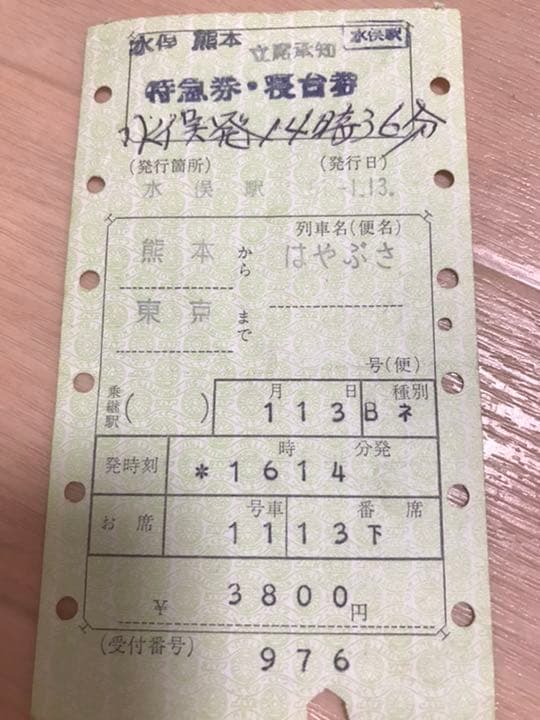 水俣 熊本 立席承知 水俣駅
特急券・寝台券
水俣発14時36分
(発行箇所) (発行日)
水俣駅 -1.13.
列車名(便名)
熊本から はやぶさ
東京まで
号(便)
乗継駅( ) 月 日 種別
113 Bネ
発時刻 時 分発
*1614
お席 号車 番 席
11 13下
¥3800円
(受付番号)
976